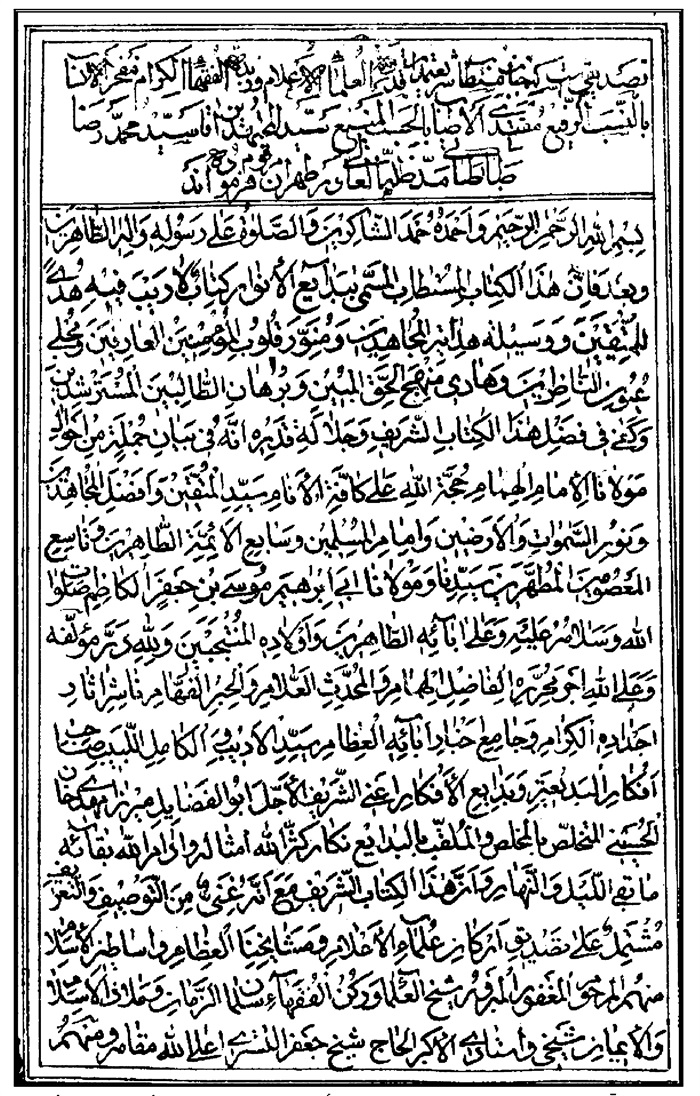 تصدیقی است که جناب مستطاب شریعتمدار قدوة العلماء الاعلام وزبدة الفقهاء الکرام مفخر الانساب
بالنسب الرفیع الاضیاء بالحسب المنیع سید المجتهدین آقا سید محمد رضا
طباطبائی مد ظله العالی در طهران مرقوم فرموده‌اند
بسم الله الرحمن الرحیم واحمده حمد الشاکرین والصلوة علی رسوله واله الطاهرین
وبعد فان هذا الکتاب المستطاب المسمی ببدایع الأنوار کتاب لا ریب فیه هدی
للمتقین ووسیلة هدایة المجاهدین ومنور قلوب المؤمنین العارفین ومجلی
عیون الناظرین وهادی منهج الحق المبین وبرهان الطالبین المسترشدین
وکفی فی فضل هذا الکتاب الشریف وجلالة قدره انه فی بیان جملة من احوال
مولانا الامام الهمام حجة الله علی کافة الانام سید المتقین وافضل المجاهدین
ونور السموات والارضین وامام المسلمین وسابع الائمة الطاهرین وتاسع
المعصومین المطهرین سیدنا ومولانا ابی ابرهیم موسی بن جعفر الکاظم صلوات
الله وسلامه علیه وعلی ابائه الطاهرین واولاده المنتجبین ولله در مؤلفه
وعلی الله اجر محرره الفاضل الهمام والمحدث العلام والحبر الفهام ناشر اثار
اجداده الکرام وجامع اخبار ابائه العظام سید الادیب الکامل اللبیب صاحب
افکار البدیعة وبدایع الأفکار اعنی الشریف الأجل ابو الفضایل میرزا مهدی خان
الحسینی المتخلص بالمخلص والملقب ببدایع نگار کثر الله امثاله وادام الله بقائه
ما بقی اللیل والنهار وان هذا الکتاب الشریف مع انه غنی من التوصیف والتعریف
مشتمل علی تصدیق ارکان علماء الاعلام ومشایخنا العظام واساطین الاسلام
منهم المرحوم المغفور المبرور شیخ العلماء ورکن الفقهاء سلمان الزمان وملاذ الاسلام
والایمان شیخی واستادی الاکبر الحاج شیخ جعفر التستری اعلی الله مقامه ومنهم